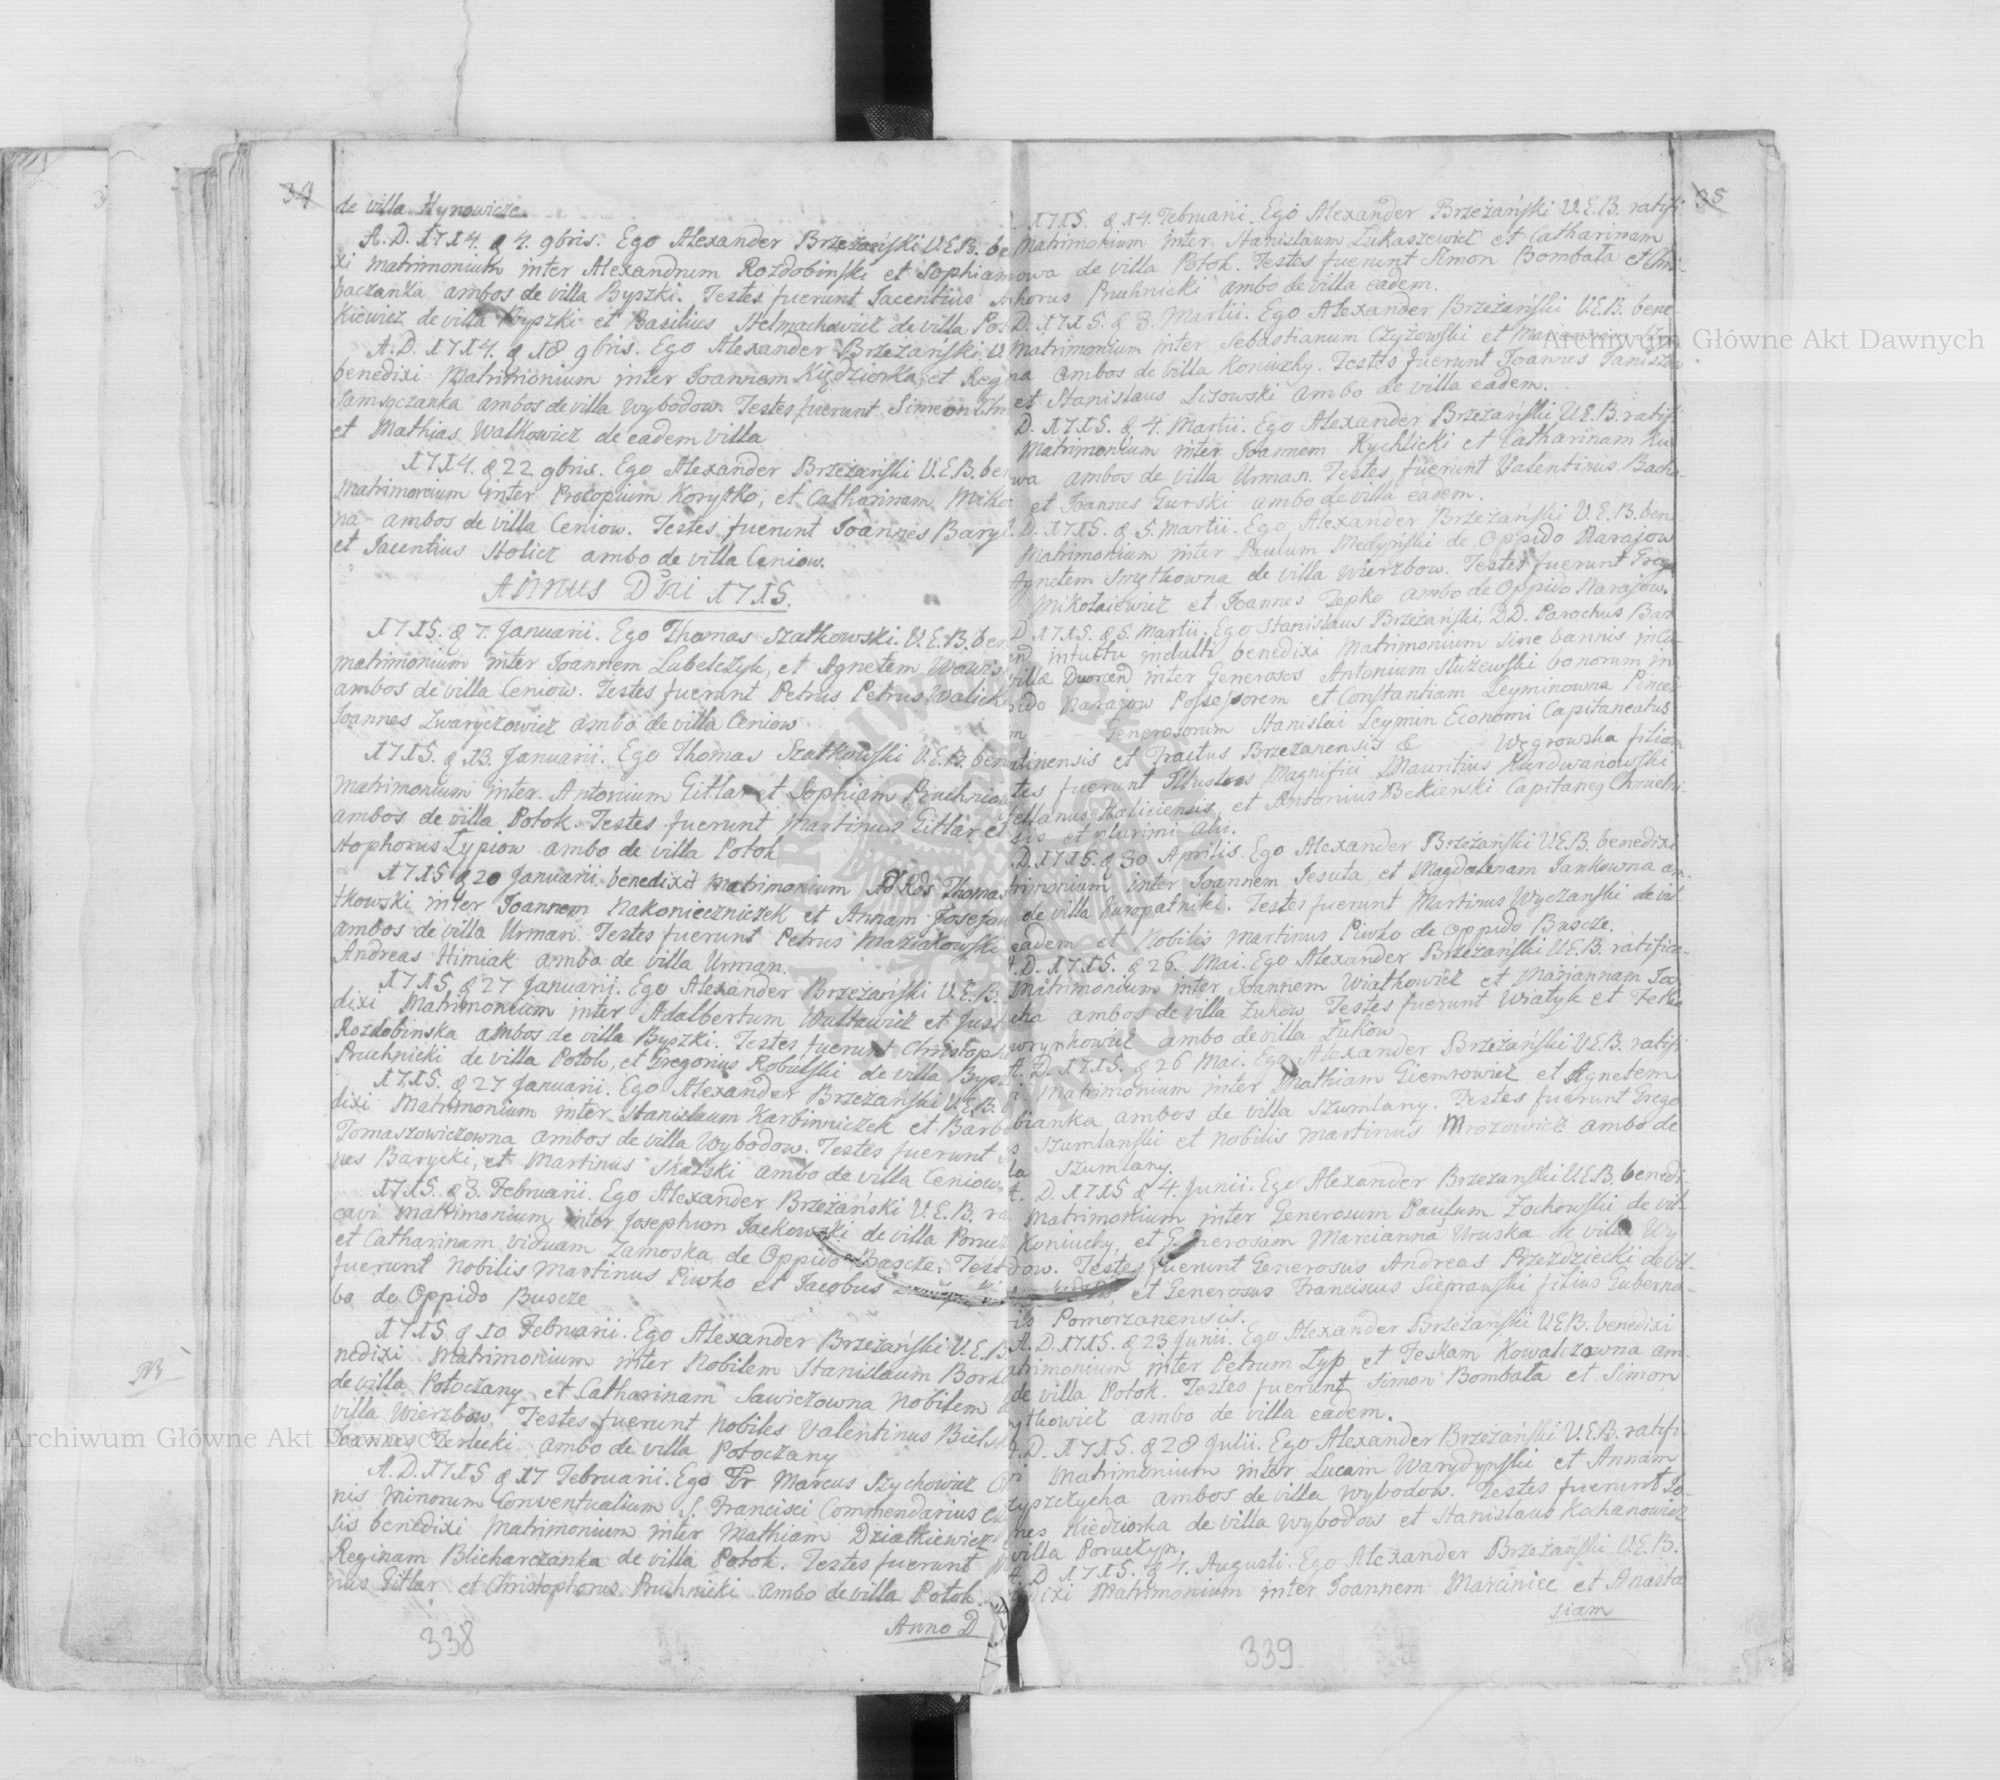 34
de villa Hynowicze
A. D. 1714. d 4. 9bris. Ego Alexander Brzeżański V.E.B. be
xi matrimonium inter Alexandrum Rozdobinski et Sophiam
baczanka ambos de villa Byszki. Testes fuerunt Iacentius
kiewicz de villa Byszki et Basilius Stelmachowicz de villa Po
A. D. 1714. d 18 9bris. Ego Alexander Brzeżański V.
benedixi Matrimonium inter Ioannem Kiędziorka, et Reg
ambos de villa Wybodow. Testes fuerunt Simeon
et Mathias Walkowicz de eadem villa
1714. d 22 9bris. Ego Alexander Brzeżański V.E.B. be
matrimonium inter Procopium Korytko, et Catharinam Miko
na ambos de villa Ceniow. Testes fuerunt Ioannes Bary
et Iacentius Stolicz ambo de villa Ceniow.
Annus Dni 1715.
1715. d 7. Januarii. Ego Thomas Szatkowski. V.E.B. be
matrimonium inter Ioannem Lubelczyk, et Agnetem
ambos de villa Ceniow. Testes fuerunt Petrus Petrus Walick
Ioannes Zwaryczowicz ambo de villa Ceniow
1715. d 13. Januarii. Ego Thomas Szatkowski V.E.B. ben
Matrimonium inter Antonium Gitlar et Sophiam Pruchnio
ambos de villa Potok. Testes fuerunt Martinus Gitlar et
stophorus Lypiow ambo de villa Potok
1715 d 20 Januarii benedixit matrimonium Thomas
tkowski inter Ioannem Nakonieczniczek et Annam Josefow
ambos de villa Urman. Testes fuerunt Petrus Maziakowski
Andreas Himiak ambo de villa Urman.
1715 d 27 Januarii. Ego Alexander Brzeżański V.E.B.
dixi Matrimonium inter Adalbertum et Just
Rozdobinska ambos de villa Byszki. Testes fuerunt Christoph
Pruchnicki de villa Potok, et Gregorius Robulski de villa Bysz
1715. d 27 Januarii. Ego Alexander Brzeżański V.E.B.
dixi Matrimonium inter Stanislaum Karbinniczek et Barb
Tomaszowiczowna ambos de villa Wybodow. Testes fuerunt
nes Barycki, et Martinus Skalski ambo de villa Ceniow.
1715. d 3. Februarii. Ego Alexander Brzeżański V.E.B. ra
cavi matrimonium inter Josephum Jackowski de villa Porucz
et Catharinam viduam Zamoska de Oppido Buscze. Test
fuerunt Nobilis Martinus Piwko et Iacobus
bo de Oppido Buscze
1715. d 10 Februarii. Ego Alexander Brzeżański V.E.B.
nedixi Matrimonium inter Nobilem Stanislaum Bork
de villa Potoczany et Catharinam Sawiczowna Nobilem
villa Wierzbow. Testes fuerunt Nobiles Valentinus Biels
Ioannes Terlecki ambo de villa Potoczany
A. D. 1715 d 17 Februarii. Ego Fr Marcus Szychowicz
nis Minorum Conventualium S. Francisci Commendarius
sis benedixi Matrimonium inter Mathiam Dziatkiewicz
Reginam Blicharczanka de villa Potok. Testes fuerunt
nus Gitlar et Christophorus Pruchnicki ambo de villa Potok
Anno D
338
35
1715. d 14. Februarii. Ego Alexander Brzeżański V.E.B. ratifi
Matrimonium inter Stanislaum Lukaszewicz et Catharinam
owa de villa Potok. Testes fuerunt Simon Bombała et
horus Pruchnicki ambo de villa eadem.
D. 1715. d 3. Martii. Ego Alexander Brzeżański V.E.B. bene
Matrimonium inter Sebastianum Czyżowski et
na ambos de villa Koniuchy. Testes fuerunt Ioannes Janiszew
et Stanislaus Lisowski ambo de villa eadem.
D. 1715. d 4. Martii. Ego Alexander Brzeżański V.E.B. ratifi
Matrimonium inter Ioannem Rychlicki et Catharinam Ku
wa ambos de villa Urman. Testes fuerunt Valentinus Bach
et Ioannes Gurski ambo de villa eadem.
D. 1715. d 5. Martii. Ego Alexander Brzeżański V.E.B. ben
Matrimonium inter Paulum Medyński de Oppido Narajow
Agnetem Smytkowna de villa Wierzbow. Testes fuerunt Greg
Mikołaiewicz et Ioannes Zepko ambo de Oppido Narajow.
D. 1715. d 5. Martii. Ego Stanislaus Brzeżański. D.D. Parochus Bar
intuitu indulti benedixi Matrimonium sine bannis in
villæ inter Generosos Antonium Służewski bonorum in
ido Narajow Possessorem et Constantiam Leyminowna Pincer
Generosorum Stanislai Leymin Economi Capitaneatus
tinensis et Tractus Brzezanensis & Węgrowska filiam
tes fuerunt Illustres Magnifici Mauritius Kurdwanowski
ellanus Haliciensis, et Antonius Bekierski Capitaneg
sis et plurimi alii.
D. 1715. d 30 Aprilis. Ego Alexander Brzeżański V.E.B. benedixi
trimonium inter Ioannem Jesuta et Magdalenam Jankowna am
de villa Kuropatniki. Testes fuerunt Martinus Wyczański de vil
eadem et Nobilis Martinus Piwko de Oppido Buscze.
A. D. 1715. d 26. Mai. Ego Alexander Brzeżański V.E.B. ratifica
Matrimonium inter Ioannem Wiatkowicz et Mariannam
cha ambos de villa Zukow. Testes fuerunt Wiatyk et
wrynkowicz ambo de villa Zukow
A. D. 1715. d 26 Mai. Ego Alexander Brzeżański V.E.B. ratifi
Matrimonium inter Mathiam Giemzowicz et Agnetem
bianka ambos de villa Szumlany. Testes fuerunt Grego
Szumlanski et Nobilis Martinus Mrozowicz ambo de
la Szumlany.
A. D. 1715 d 4. Junii. Ego Alexander Brzeżański V.E.B. benedi
Matrimonium inter Generosum Paulum Zochowski de vil
Koniuchy, et Generosam Mariannā Uruska de villa Wy
dow. Testes fuerunt Generosus Andreas Przezdziecki de vil
et Generosus Franciscus Sieprawski filius Guberna
is Pomorzanensis.
A. D. 1715. d 23 Junii. Ego Alexander Brzeżański V.E.B. benedixi
atrimonium inter Petrum Lyp et Feskam Kowalczowna am
de villa Potok. Testes fuerunt Simon Bombała et Simon
ytkowicz ambo de villa eadem.
A. D. 1715. d 28 Julii. Ego Alexander Brzeżański V.E.B. ratifi
Matrimonium inter Lucam Warydynski et Annam
zyszczycha ambos de villa Wybodow. Testes fuerunt Io
nes Kiedziorka de villa Wybodow et Stanislaus Kochanowicz
villa Poruczyn.
A. D 1715. d 4. Augusti. Ego Alexander Brzeżański. V.E.B.
dixi Matrimonium inter Ioannem Marciniec et Anasta
siam
339
Archiwum Główne Akt Dawnych
Archiwum Główne Akt Dawnych